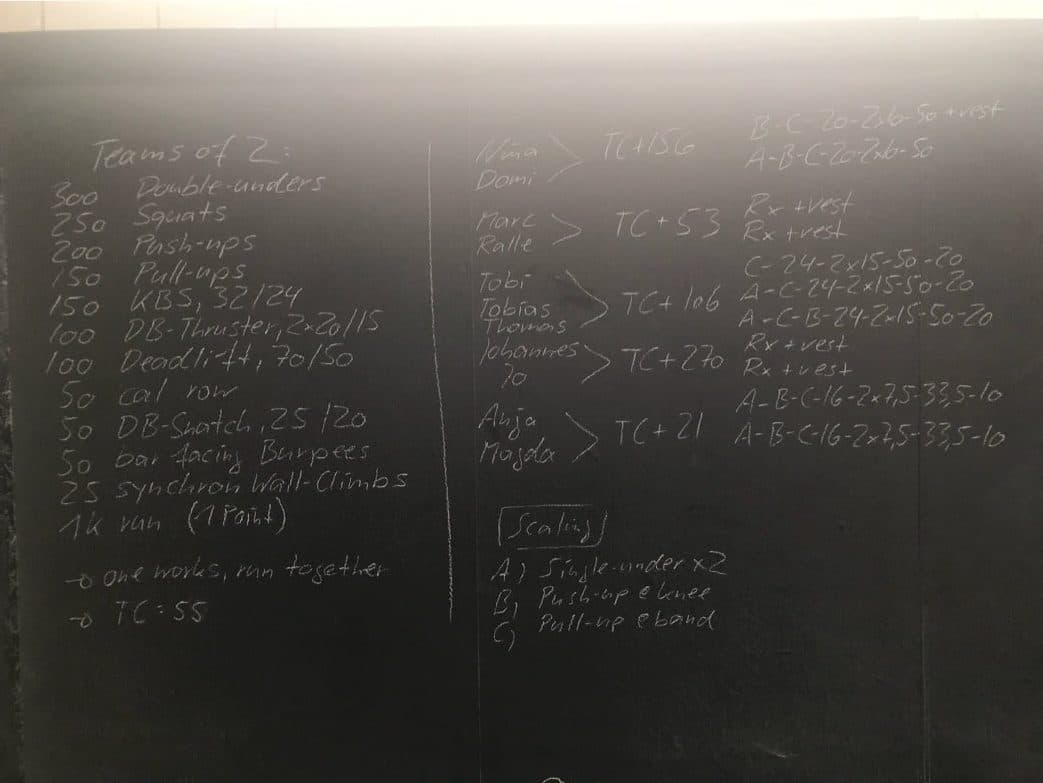 Teams of 2:
300 Double-unders
250 Squats
200 Push-ups
150 Pull-ups
150 KBS, 32/24
100 DB-Thruster, 2x20/15
100 Deadlift, 70/50
50 cal row
50 DB-Snatch, 25/20
50 bar facing Burpees
25 synchron Wall-Climbs
1k run (1 Point)
→ one works, run together
→ TC: 55
Nina
Domi
TC+156
B-C-20-2x6-50 +vest
A-B-C-20-2x6-50
Marc
Ralle
TC+53
Rx +vest
Rx +vest
Tobi
Tobias
Thomas
TC+106
C-24-2x15-50-20
A-C-24-2x15-50-20
A-C-B-24-2x15-50-20
Johannes
Jo
TC+270
Rx +vest
Rx +vest
Anja
Magda
TC+21
A-B-C-16-2x7,5-33,5-10
A-B-C-16-2x7,5-33,5-10
Scaling
A) Single-under x2
B) Push-up @ knee
C) Pull-up @ band